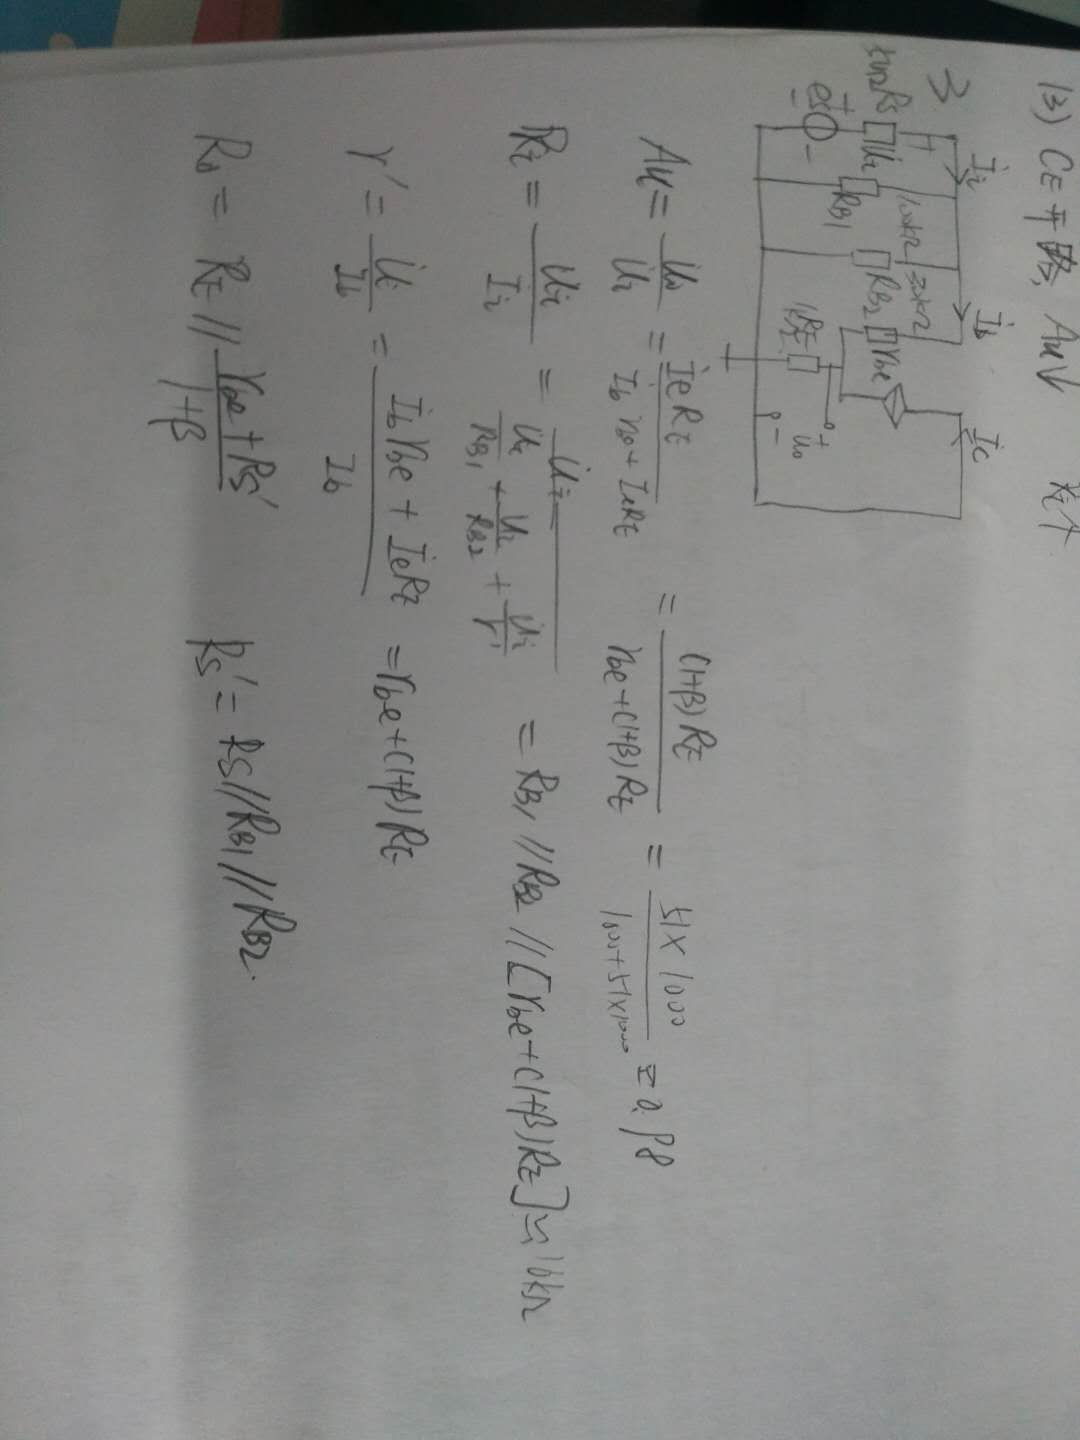 (3) CE开路, Au↓ ri↑
3
Ii Ib Ic
Rs Ui RB1 100kΩ RB2 rbe
es + -
RE + uo -
Au = Uo/Ui = IeRE/(Ib rbe + IeRE) = (1+β)RE/(rbe+(1+β)RE) = 51×1000/(1000+51×1000) = 0.98
Ri = Ui/Ii = Ui/(Ui/RB1 + Ui/RB2 + Ui/r') = RB1//RB2//[rbe+(1+β)RE] ≈ 16kΩ
r' = Ui/Ib = (Ib rbe + IeRE)/Ib = rbe+(1+β)RE
Ro = RE // (rbe+Rs')/(1+β) Rs' = Rs//RB1//RB2.